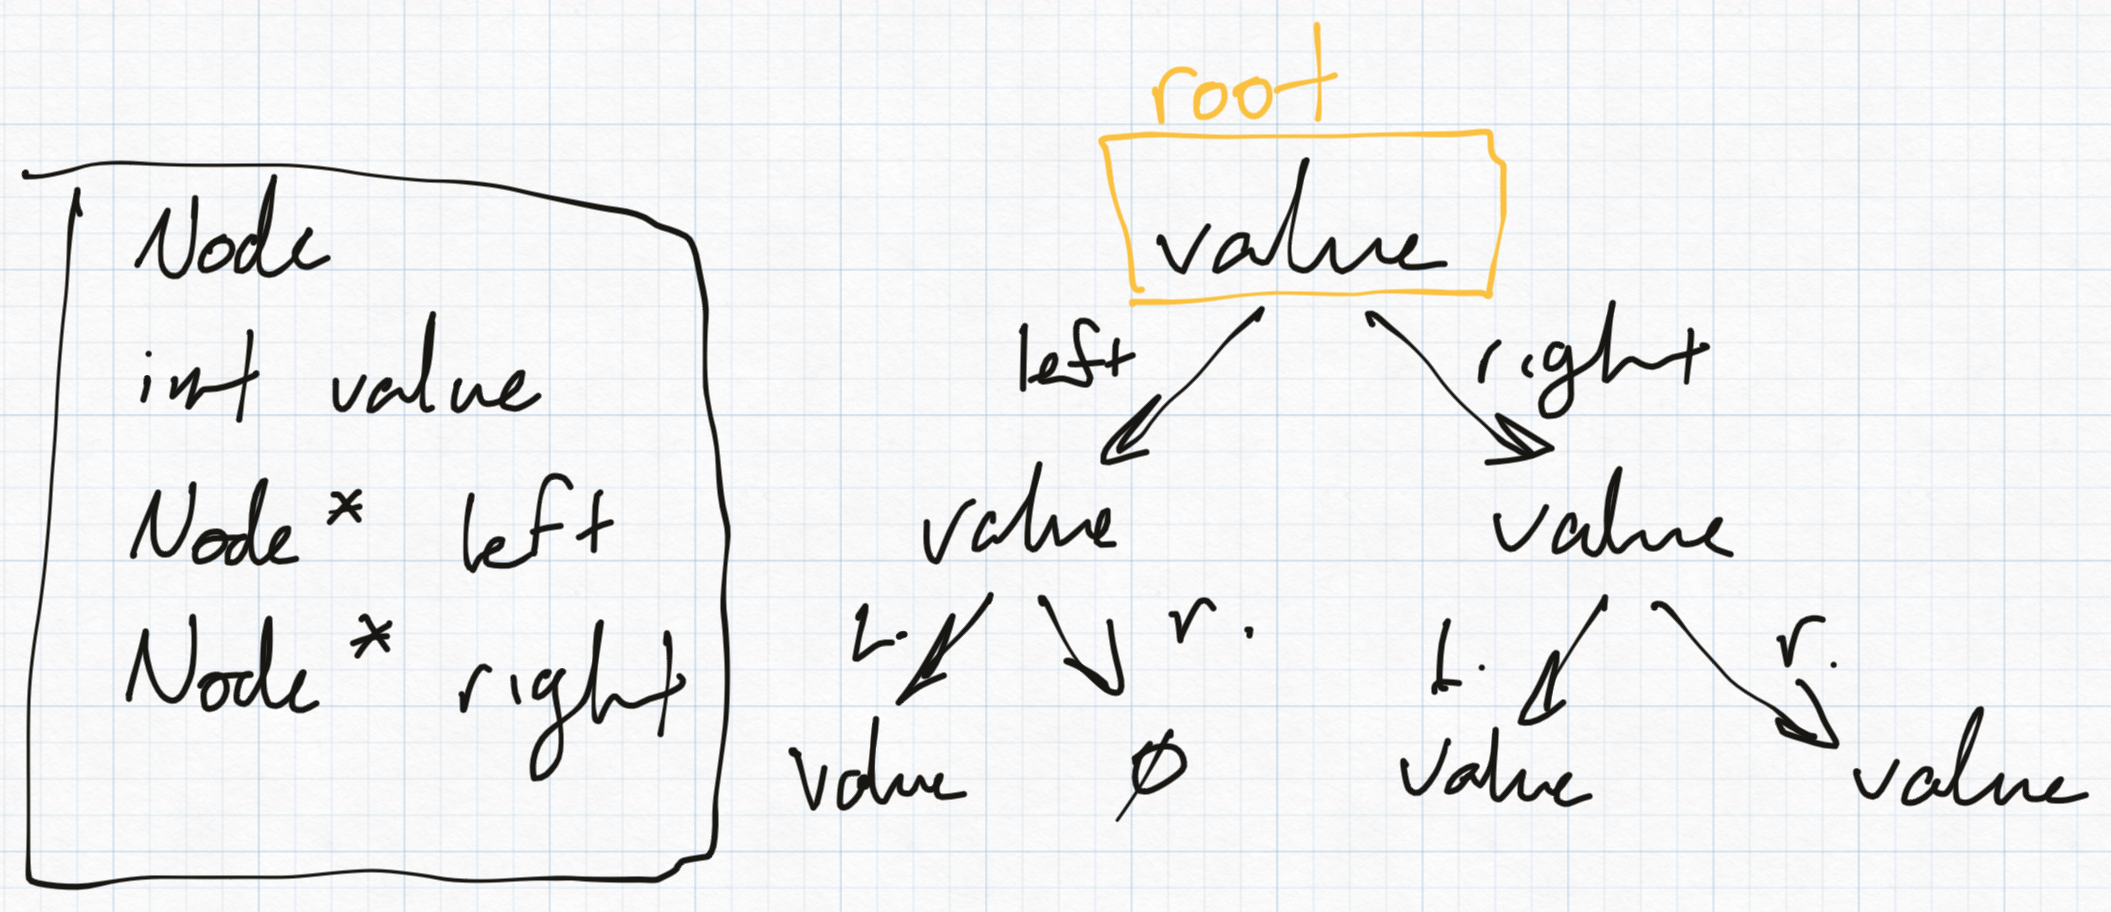 Node
int value
Node* left
Node* right
root
value
left right
value value
L. r. L. r.
value ø value value